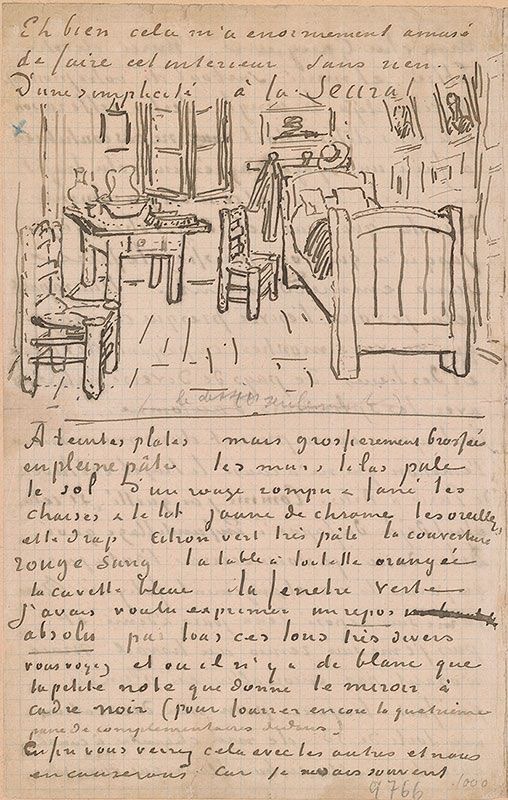 Eh bien cela m'a enormement amusé
de faire cet interieur sans rien.
D'une simplicité à la Seurat
le dessin seulement
A teintes plates mais grossierement brossées
en pleine pâte les murs lilas pale
le sol d'un rouge rompu & fané les
chaises & le lit jaune de chrome les oreillers
et le drap citron vert très pâle la couverture
rouge sang la table à toilette orangée
la cuvette bleue la fenetre verte
J'avais voulu exprimer un repos
absolu par tous ces tons très divers
vous voyez et où il n'y a de blanc que
la petite note que donne le miroir à
cadre noir (pour fourrer encore la quatrième
paire de complementaires dedans.)
Enfin vous verrez cela avec les autres et nous
en causerons car je ne sais souvent
9766
1000